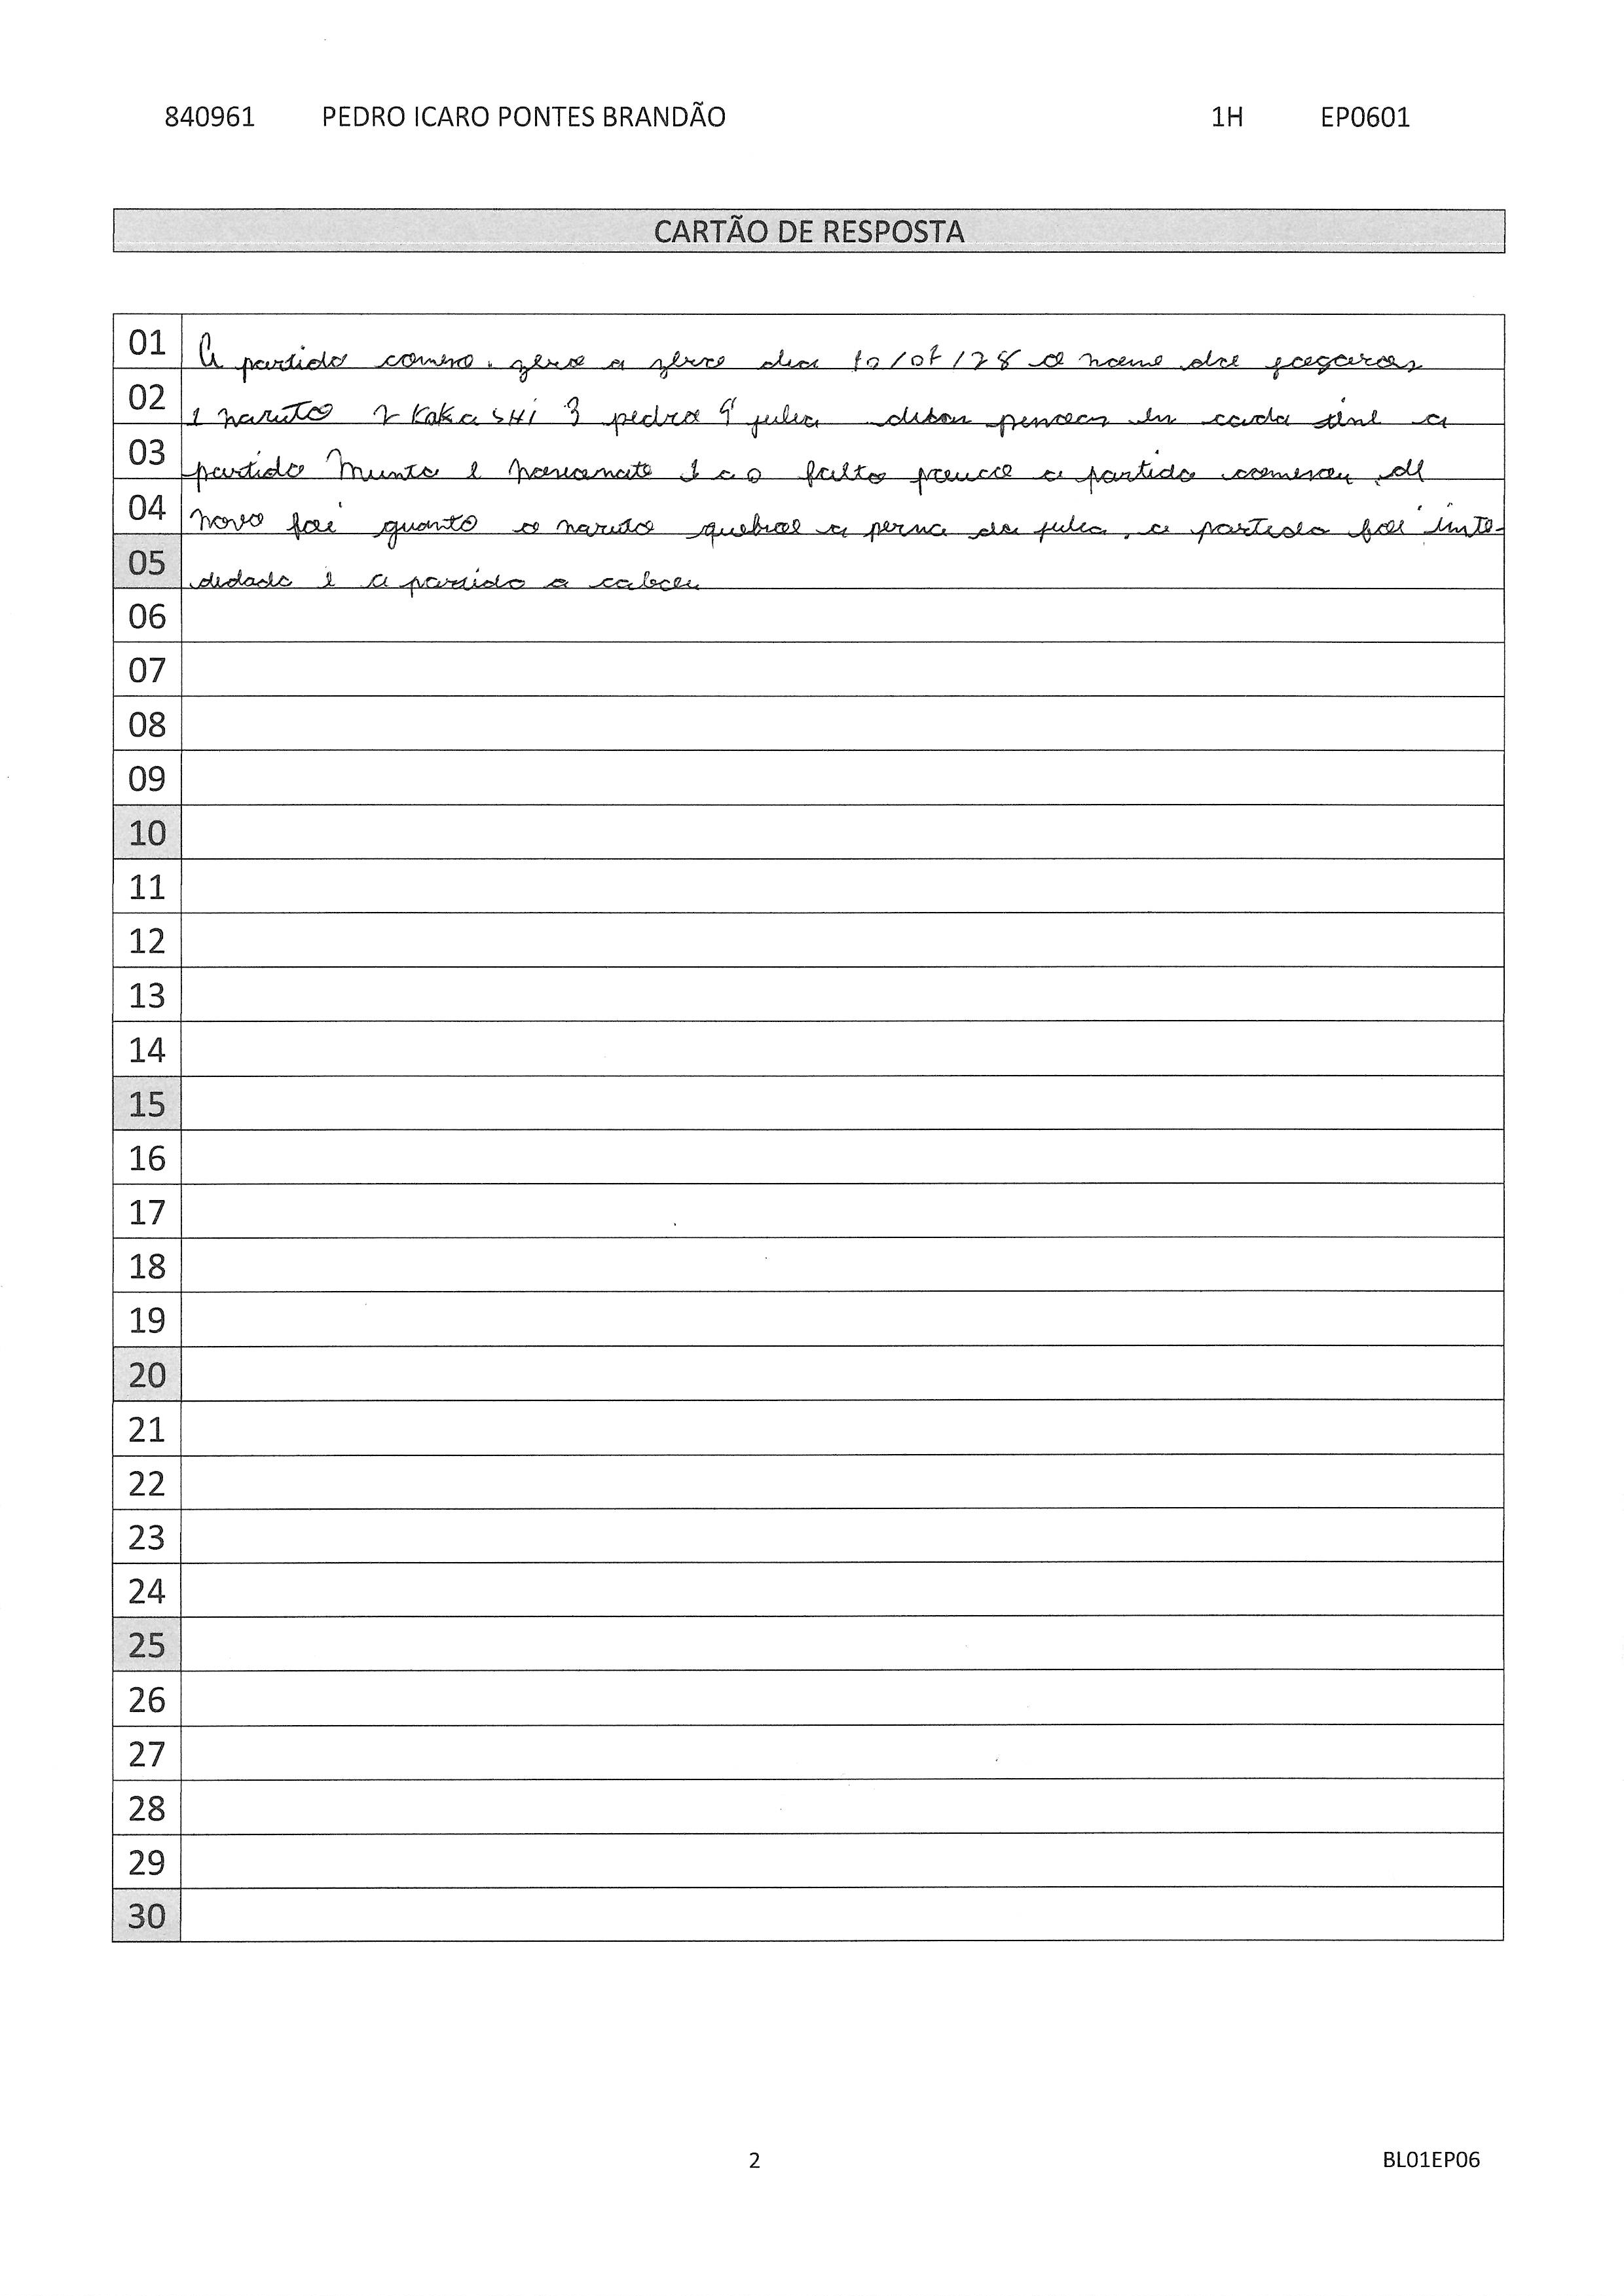 840961 PEDRO ICARO PONTES BRANDÃO 1H EP0601
CARTÃO DE RESPOSTA
01 A partida comeso. zero a zero dia o nome do jogaros
02 1 naruto 2 KaKa SHi 3 pedro 4 julia pesoas en cada time a
03 partida munto e 1 a 0 falto pouco a partida comesou de
04 novo foi quanto o naruto quebroe a perna da julia. a partida foi inte-
05 didado i a partida a cabou
06
07
08
09
10
11
12
13
14
15
16
17
18
19
20
21
22
23
24
25
26
27
28
29
30
2 BL01EP06